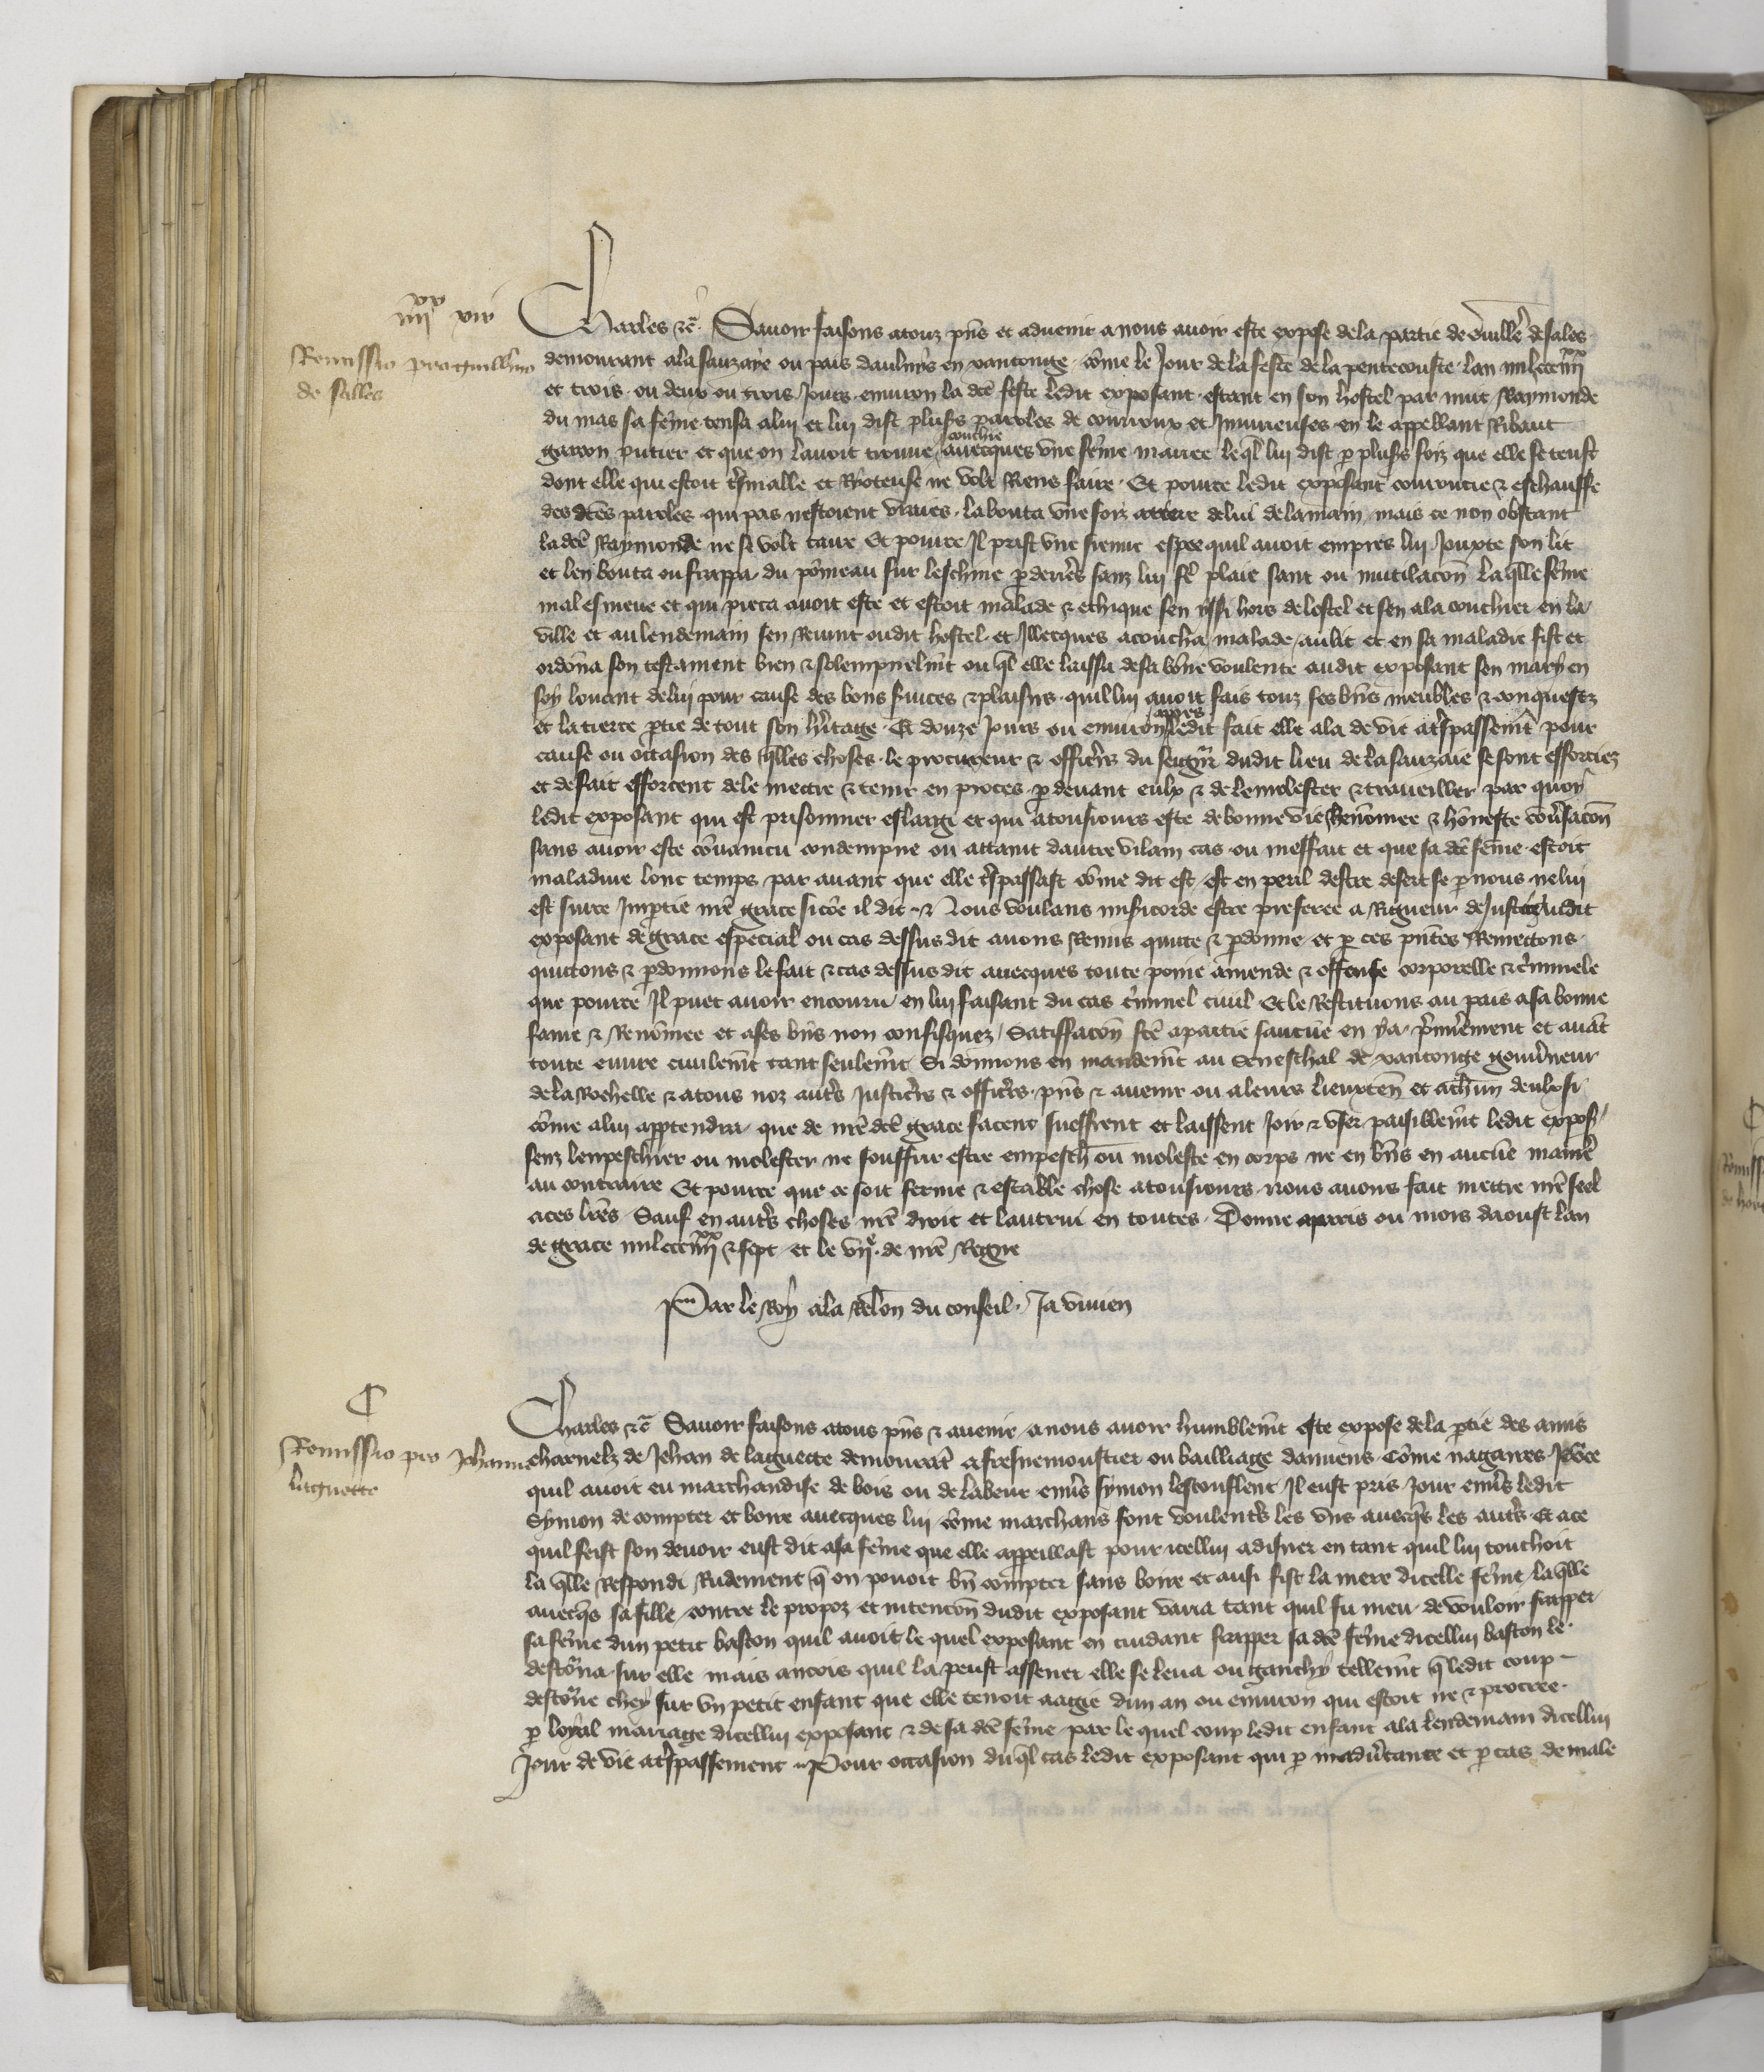 iiii xx xix
Remissio pro guill'mo
de salles
Charles &c. Savoir faisons a touz pn̄s et advenir a nous avoir este expose de la partie de Guill'e de sales
demourant a la sauzaye ou pais daulnis en xantonge come le Jour de la feste de la penthecouste lan mil ccc iiii xx
et trois ou deux ou trois Jours environ la dc̄e feste ledit exposant estant en son hostel par nuit Raymonde
du mas sa fēme tensa a lui et lui dist plus's paroles de courroux et Injurieuses en le appellant Ribaut
garcon putier et que on lavoit trouve couchie avecques une fēme mariee leql̄ lui dist p plus's foiz que elle se teust
dont elle qui estoit t's malle et Ryoteuse ne volt Rens faire Et pource ledit exposant courrucie & eschauffe
des dc̄es paroles qui pas nestoient vraies la bouta une foiz arriere de lui de la main mais ce non obstant
la dc̄e Raymonde ne se volt taire Et pource Il prist une sienne espee quil avoit empres lui Jouxte son lit
et len bouta ou frappa du pōmeau sur leschine p derrie's sanz lui fe' plaie sanc ou mutilacōn laq̄lle fēme
mal esmeue et qui pieca avoit este et estoit malade & ethique sen yssi hors de lostel et sen ala couchier en la
ville et au lendemain sen Revint oudit hostel et Illecques acoucha malade au lit et en sa maladie fist et
ordōna son testament bien & solempnelmt̄ ou ql̄ elle laissa de sa bōne voulente audit exposant son mary en
soy louent de lui pour cause des bons s'vices & plaisirs quil lui avoit fais touz ses bn̄s meubles & conquestz
et la tierce p̄tie de tout son h'itage Et douze Jours ou environ apres ledit fait elle ala de vie a t'spassemt̄ pour
cause ou occasion des q̄lles choses le procureur & office's du seign̄r dudit lieu de la sauzaie se sont efforciez
et de fait efforcent de le mettre & tenir en proces p devant eulx & de le molester & traveillier par quoy
ledit exposant qui est prisonnier eslargi et qui a tousiours este de bonne vie Renōmee & hōneste cōv'sacōn
sans avoir este cōvaincu condempne ou attaint dautre vilain cas ou meffait et que sa dc̄e fēme estoit
maladive lonc temps par avant que elle t'spassast cōme dit est est en peril destre desert se p nous ne lui
est sur ce Imp̄tie nr̄e grace si cōe il dit & Nous voulans mis'icorde estre preferee a Rigueur de Justice audit
exposant de grace especial ou cas dessus dit avons Remis quitte & p̄donne et p ces pn̄tes Remettons
quittons & p̄donnons le fait & cas dessus dit avecques toute poine amende & offense corporelle & c'iminele
que pource Il puet avoir encouru en lui faisant du cas c'iminel civil Et le Restituons au pais a sa bonne
fame & Renōmee et a ses bn̄s non confisquez Satisfacōn fc̄e a partie sauc̄ue en y a p'mie'ement et avāt
toute euvre civilemt̄ tant seulemt̄ Si donnons en mandemt̄ au Seneschal de xantonge gouv'neur
de la Rochelle & a tous noz aut's Justicie's & officie's pn̄s & avenir ou a leurs lieuxten̄ et a ch'un deulx si
cōme a lui app̄tendra que de nr̄e dc̄e grace facent sueffrent et laissent Joir & user paisiblemt̄ ledit expos'
senz lenpeschier ou molester ne souffrir estre empesch' ou moleste en corps ne en bn̄s en auc̄ue manie'
au contraire Et pource que ce soit ferme & estable chose a tousiours nous avons fait mettre nr̄e seel
a ces lr̄es Sauf en aut's choses nr̄e droit et lautrui en toutes Donne a paris ou mois daoust lan
de grace mil ccc iiii xx & sept et le vije de nr̄e Regne
Par le Roy a la Relōn du conseil Ja vivien
C
Remissio pro Johanne
laguette
Charles &c. Savoir faisons a tous pn̄s & avenir a nous avoir humblemt̄ este expose de la p̄tie des amis
charnelz de Jehan de laguette demourāt a fresnemoustier ou bailliage damiens Cōme nagaires pōce
quil avoit eu marchandise de bois ou de labeur env's symon lescouflent Il eust pris Jour env's ledit
Symon de compter et boire avecques lui cōme marchans sont voulent's les uns avecq̄s les aut's Et a ce
quil feist son devoir eust dit a sa fēme que elle appeillast pour icellui a disner en tant quil lui touchoit
la q̄lle Respondi Rudement q̄ on povoit bn̄ compter sans boire et ausi fist la mere dicelle fēme la q̄lle
avecq̄s sa fille contre le propoz et intencōn dudit exposant varia tant quil fu meu de vouloir frapper
sa fēme dun petit baston quil avoit le quel exposant en cuidant frapper sa dc̄e fēme dicellui baston le
destōrna sur elle mais ancois quil la peust assener elle se leva ou ganchy tellemt̄ q̄ ledit coup
destōrne chey sur un petit enfant que elle tenoit aagie dun an ou environ qui estoit ne & procree
p loyal mariage dicellui exposant & de sa dc̄e fēme par le quel coup ledit enfant ala lendemain dicellui
Jour de vie a t'spassement Pour occasion duql̄ cas ledit exposant qui p inadv'tance et p cas de male